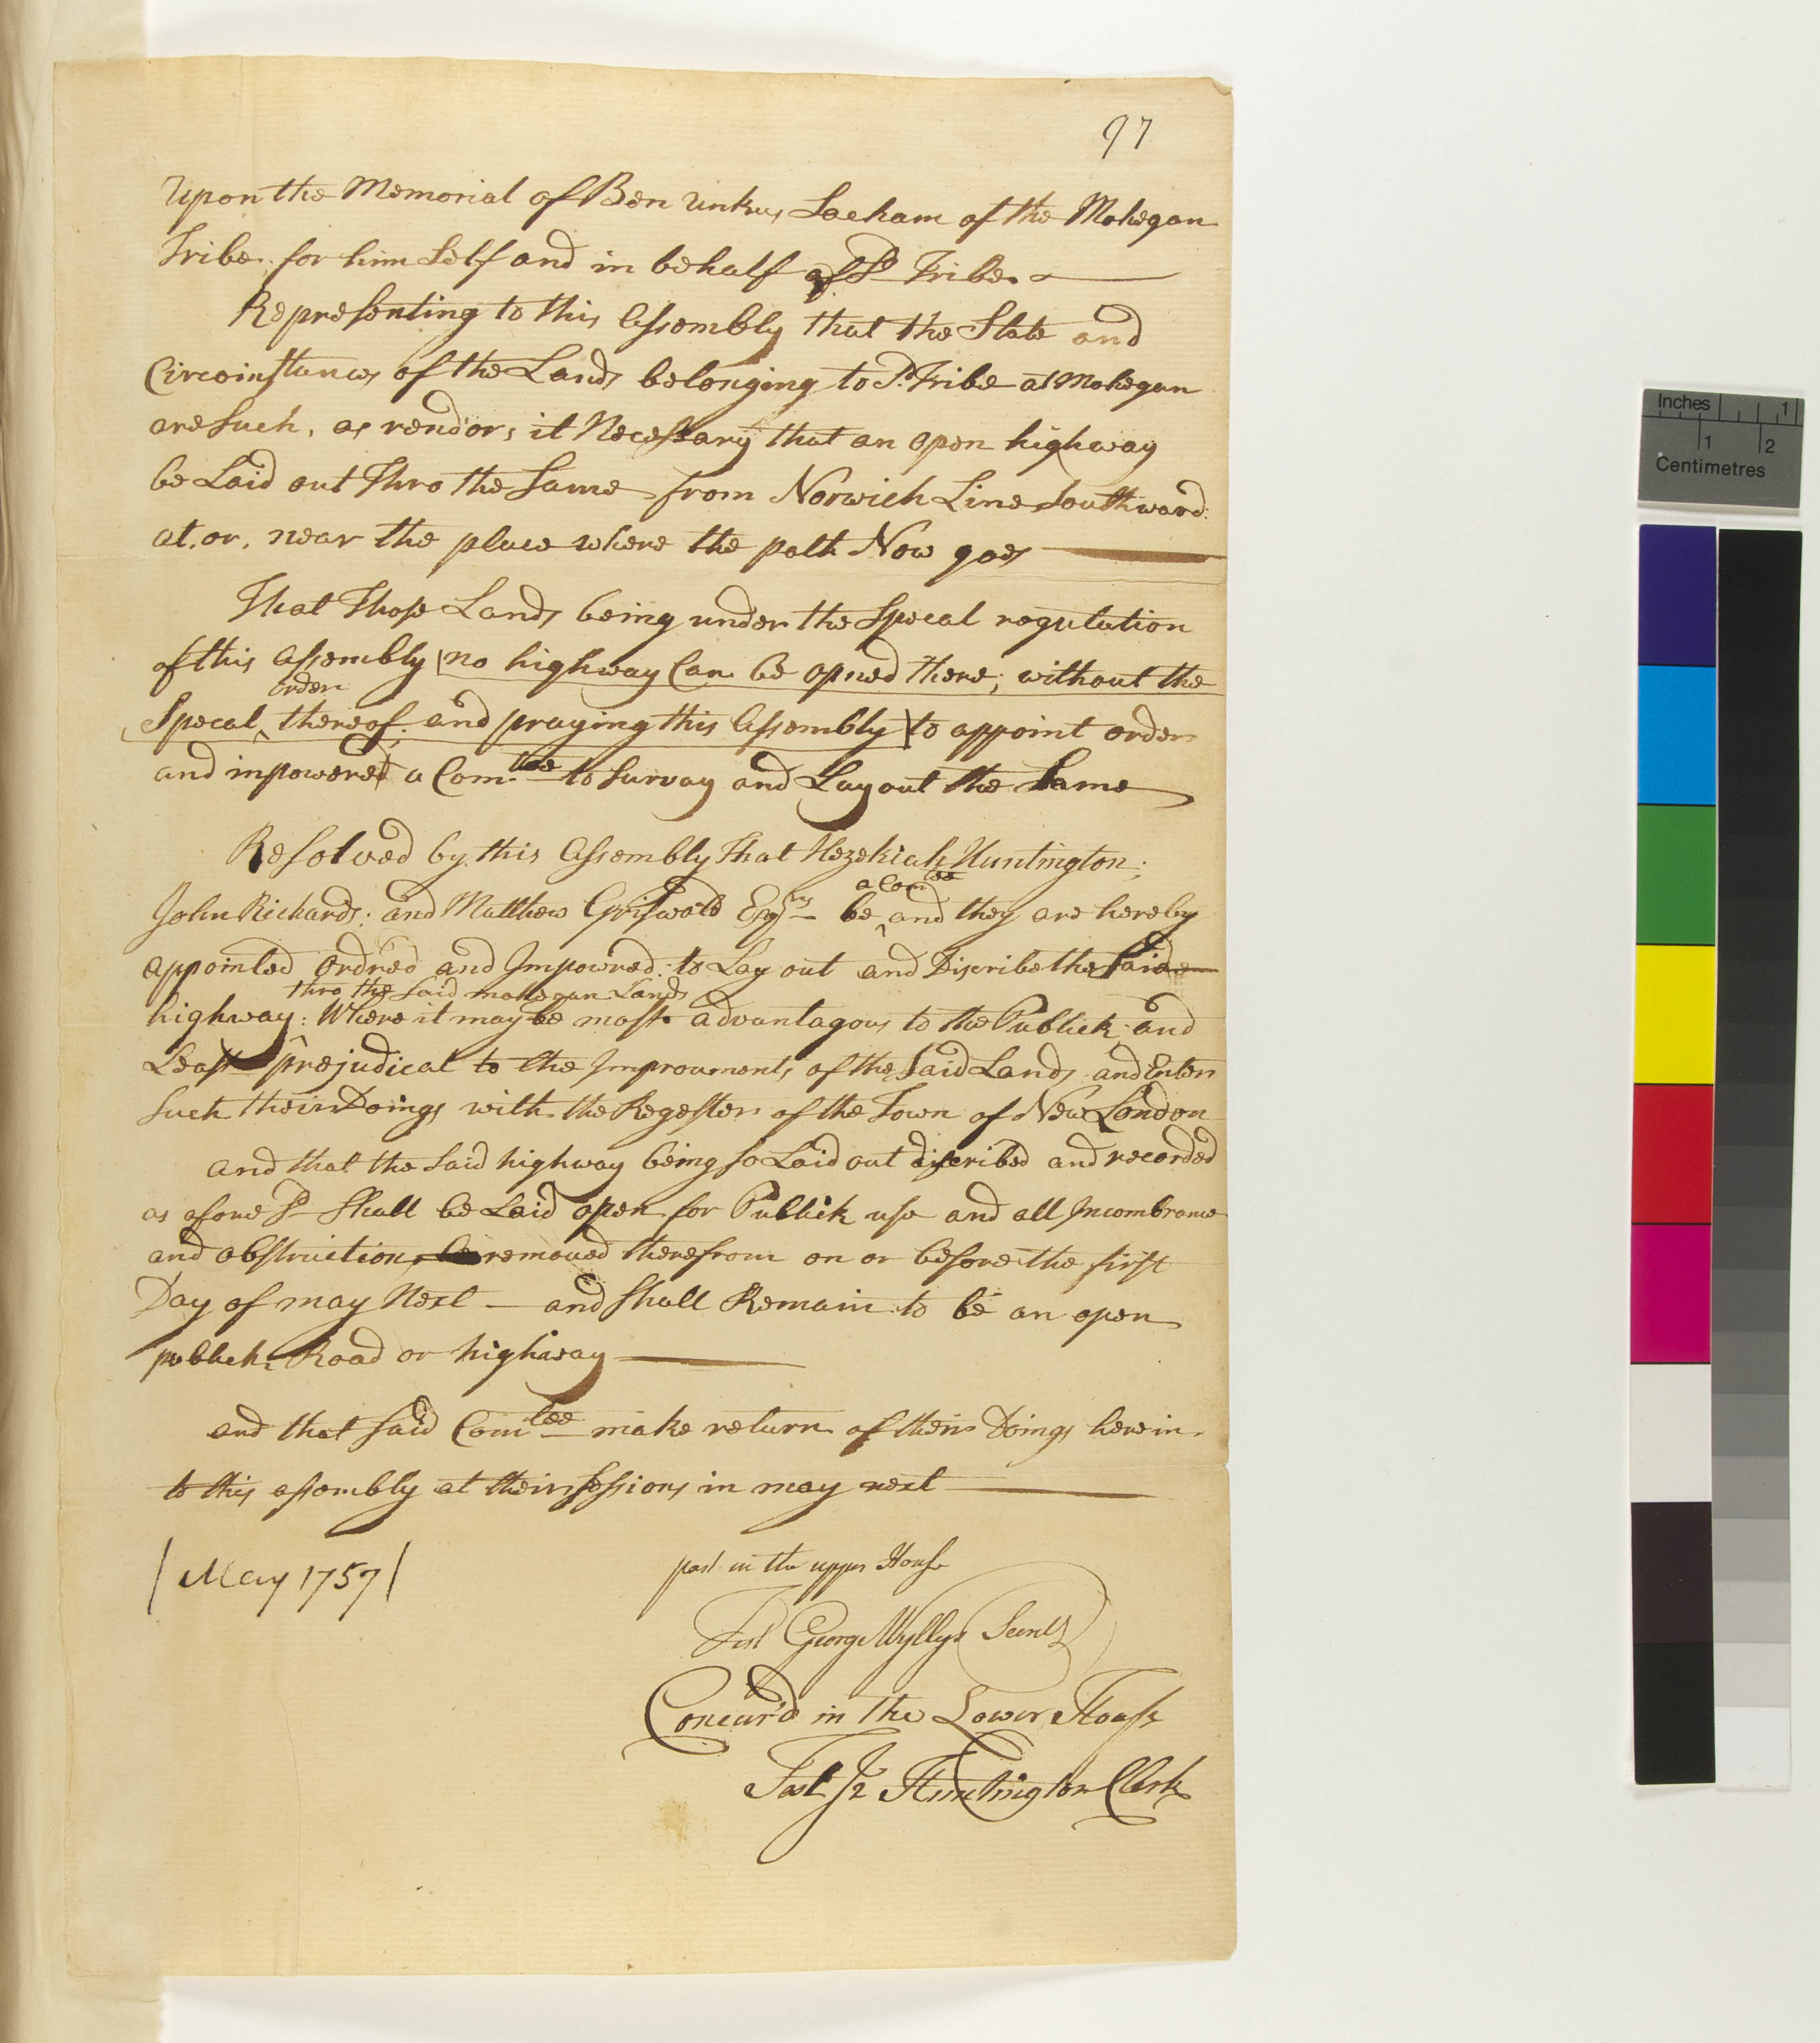 97
Upon the Memorial of Ben Unkus Sacham of the Mohegan
Tribe for him Self and in behalf of Sd Tribe
Representing to this Assembly that the State and
Circumstances of the Lands belonging to Sd Tribe at Mohegan
are Such, as rendors it Necessary that an open highway
be Laid out Thro the Same from Norwich Line Southward
at, or, near the place where the path Now goes
That Those Lands being under the Specal regulation
of this assembly no highway Can be opned there; without the
order
Specal thereof: and praying this Assembly to appoint order
and impowered a Comtee to Survay and Lay out the Same
Resolved by this Assembly That Hezekiah Huntington;
a Comtee
John Richards: and Matthew Griswold Esqrs be and they are hereby
appointed ordred and Impowred: to Lay out and Discribe the Said
thro the Said mohegan Lands
highway: Where it may be most advantagous to the Publick and
Least prejudical to the Improvments of the Said Lands and Enter
Such their Doings with the Regester of the Town of New London
and that the Said highway being so Laid out discribed and recorded
as afore Sd Shall be Laid open for Publick use and all Incombrance
and obstruction removed therefrom on or before the first
Day of may Next and Shall Remain to be an open
publick Road or highway
and that Said Comtee make return of their Doings herein
to this assembly at their sessions in may next
May 1757
past in the upper House
Test George Wyllys Secrety
Concur'd in the Lower House
Test Huntington Clerk
Inches 1
1 2
Centimetres